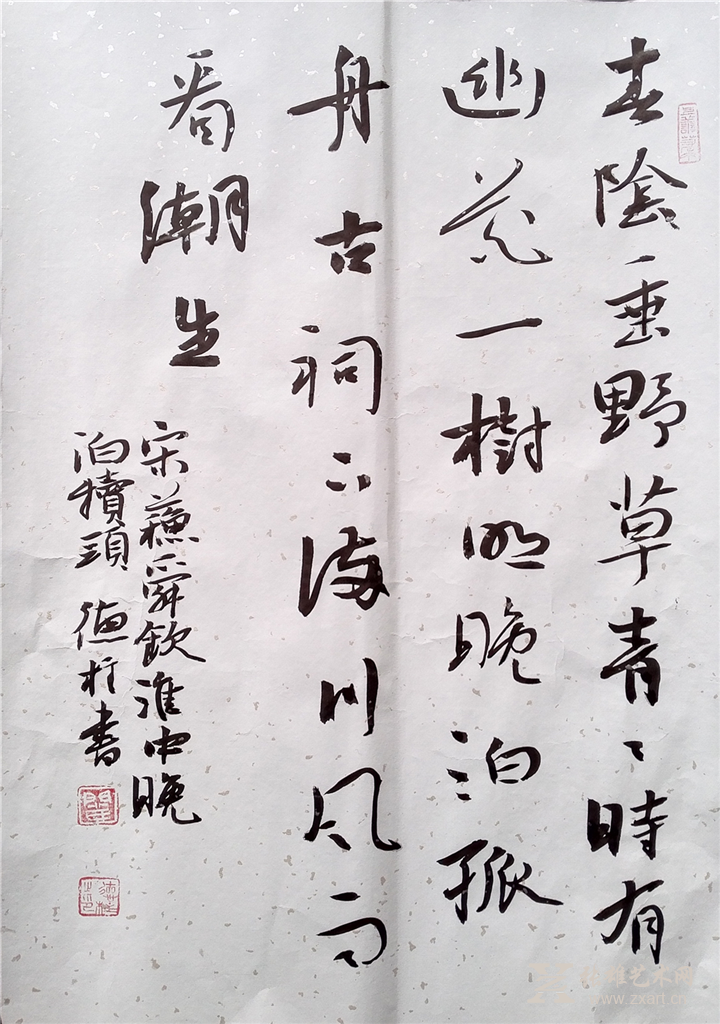 春陰垂野草青〻時有
幽花一樹明晚泊孤
舟古祠下滿川風雨
看潮生
宋蘇舜欽淮中晚
泊犢頭 德材書
www.zxart.cn